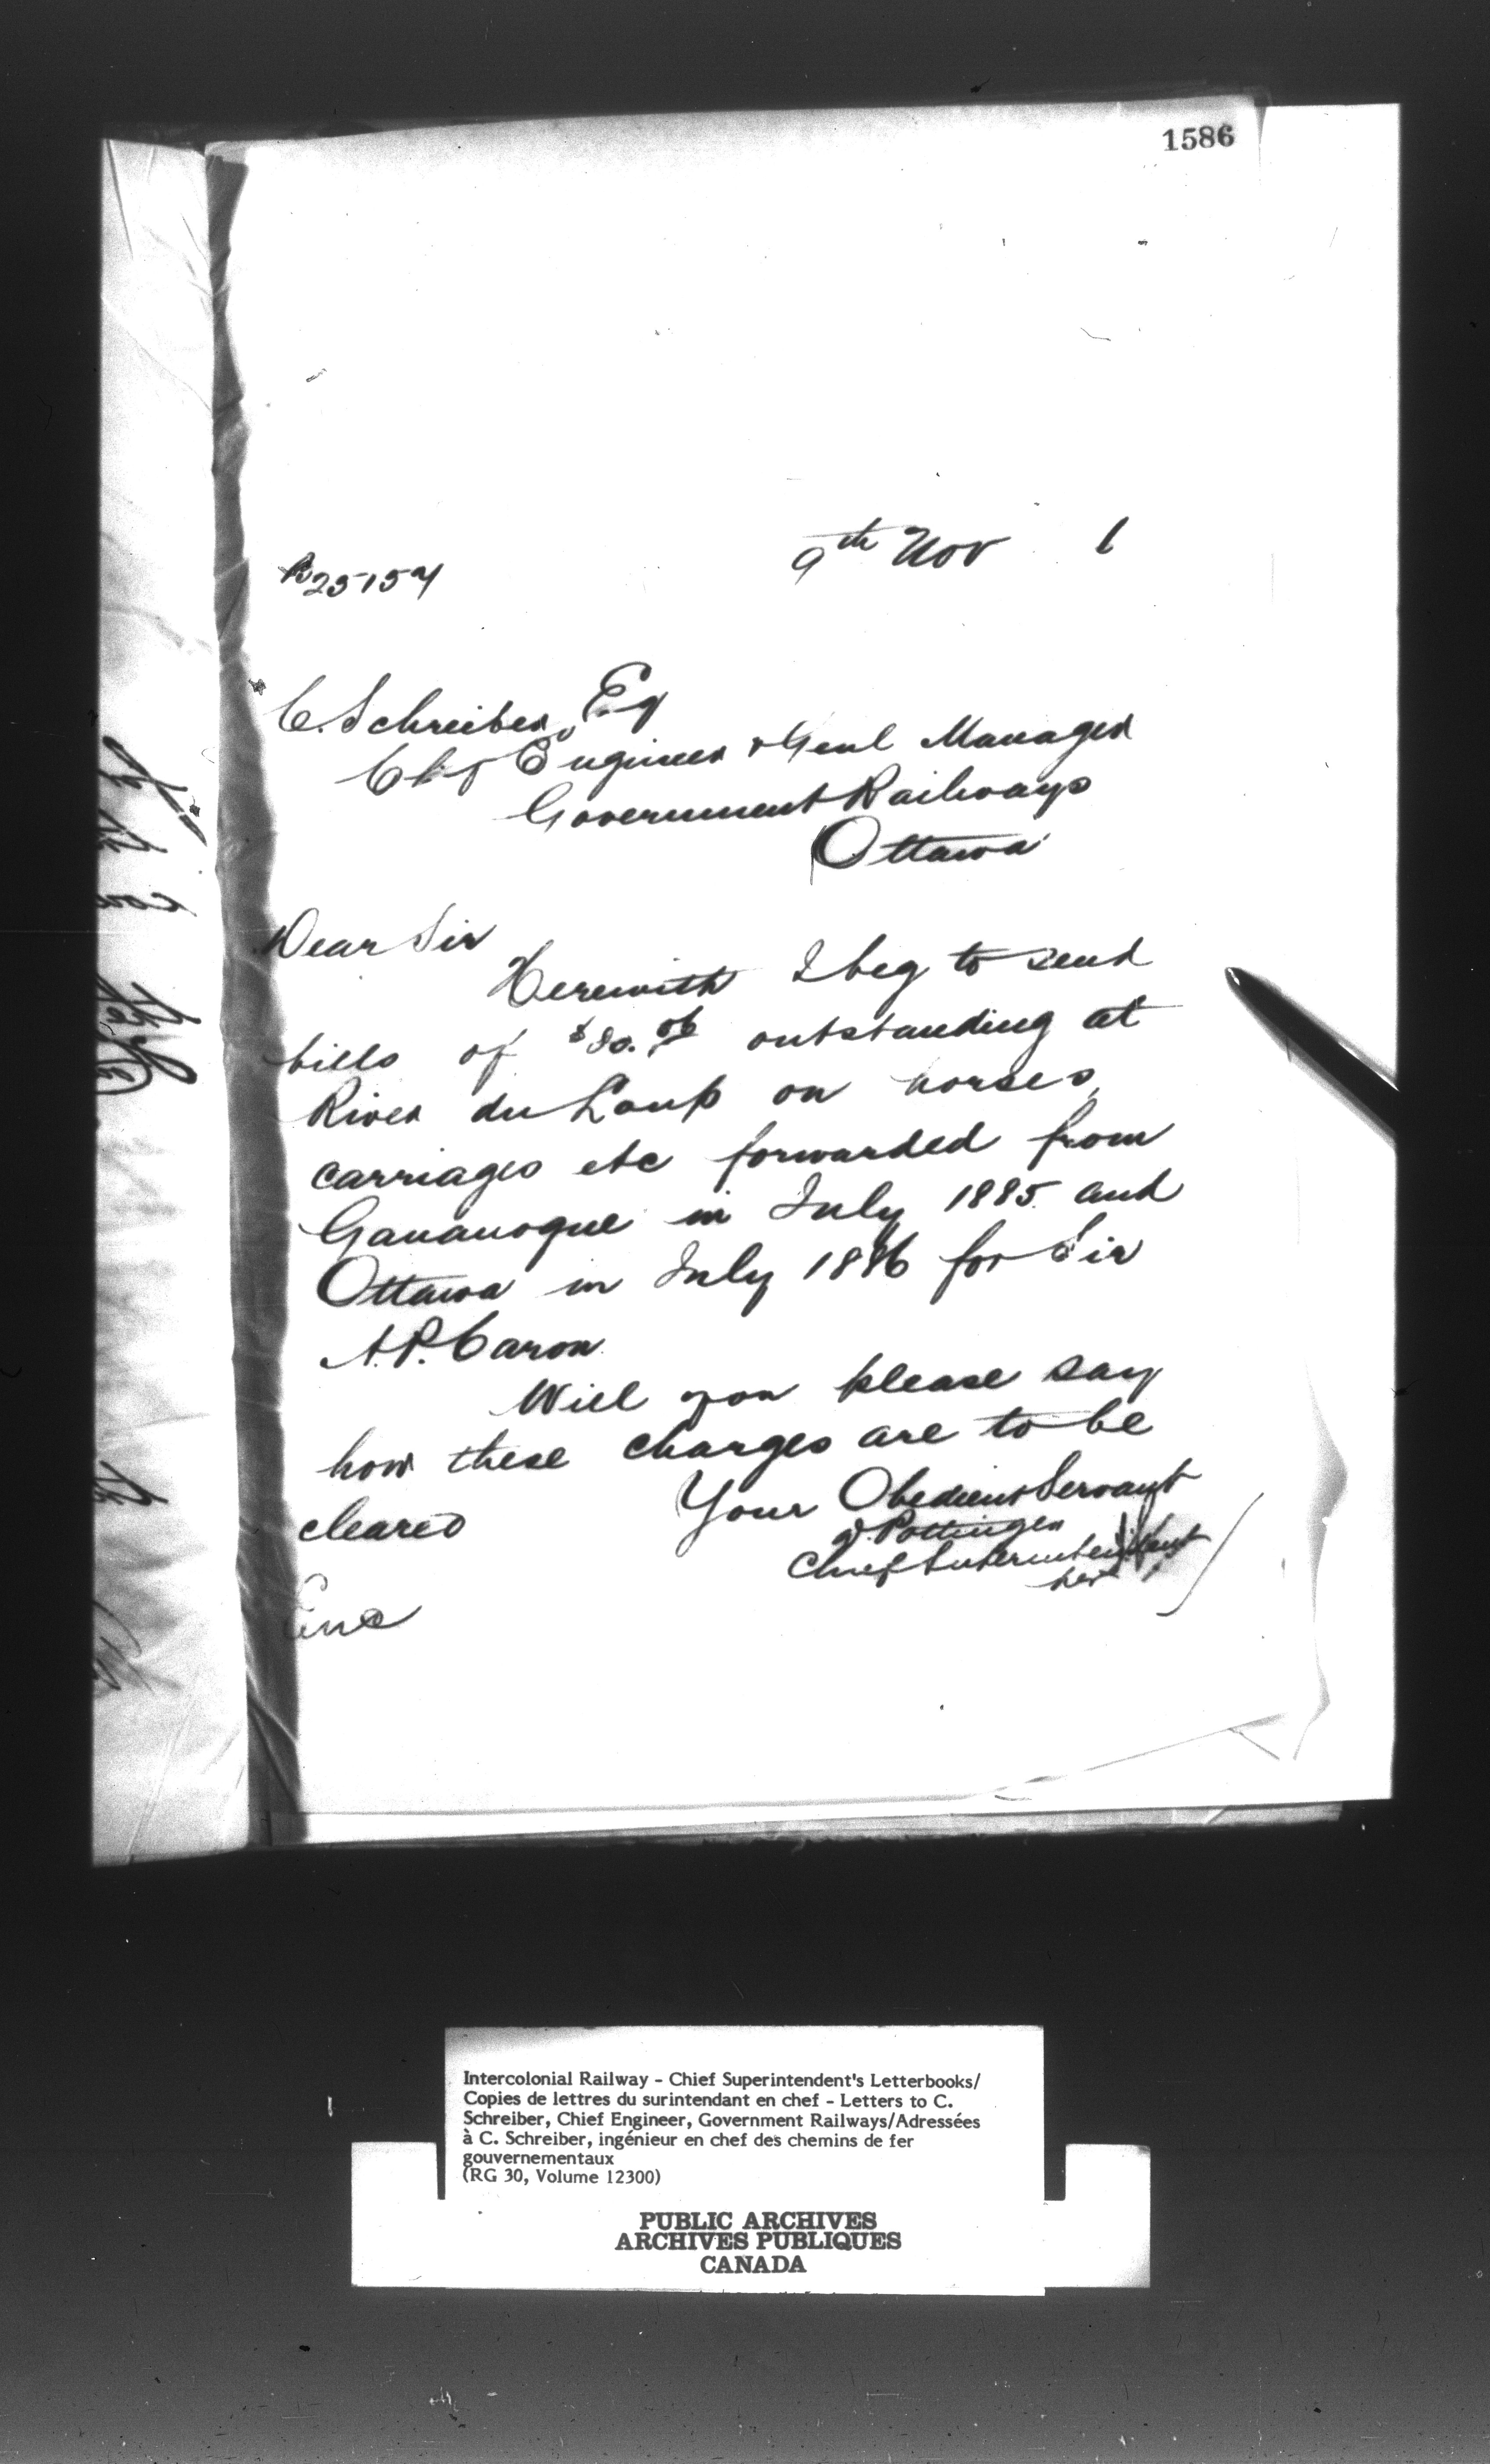 1586
9th Nov 6
R25154
C. Schreiber, Esq
Chf Engineer & Genl Manager
Government Railways
Ottawa
Dear Sir
Herewith I beg to send
bills of outstanding at
River du Loup on horses,
carriages etc forwarded from
Gananoque in July 1885 and
Ottawa in July 1886 for Sir
A.P. Caron
Will you please say
how these charges are to be
cleared
Your Obedient Servant
D. Pottinger
Chief Superintendent
per
Enc
Intercolonial Railway - Chief Superintendent's Letterbooks/
Copies de lettres du surintendant en chef - Letters to C.
Schreiber, Chief Engineer, Government Railways/Adressées
à C. Schreiber, ingénieur en chef des chemins de fer
gouvernementaux
(RG 30, Volume 12300)
PUBLIC ARCHIVES
ARCHIVES PUBLIQUES
CANADA